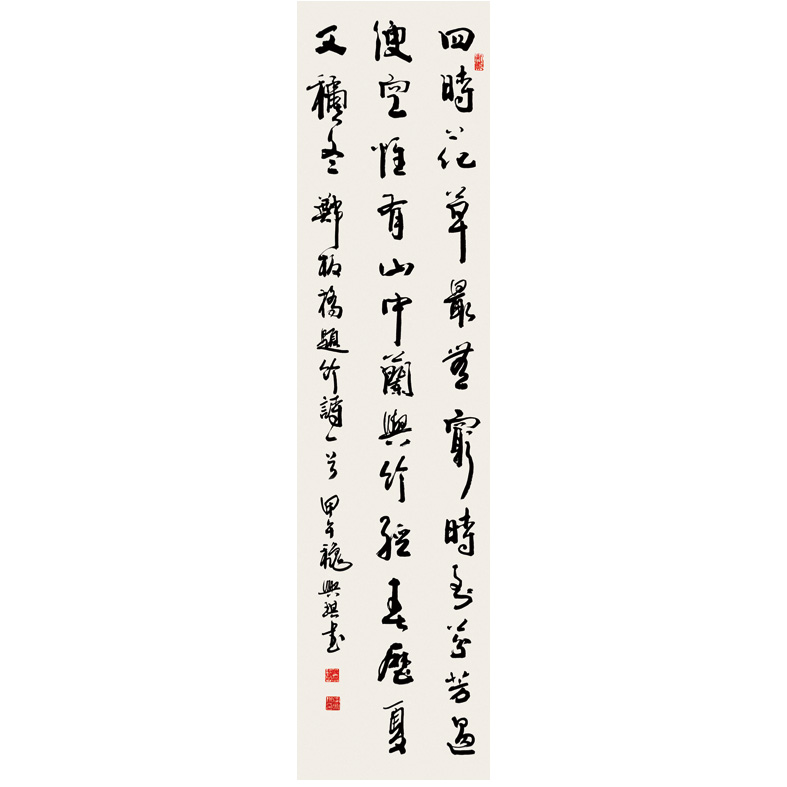 四時花草最無窮時到芬芳過
便空惟有山中蘭與竹經春歷夏
又穐冬鄭板橋題竹詩一首甲午穐書